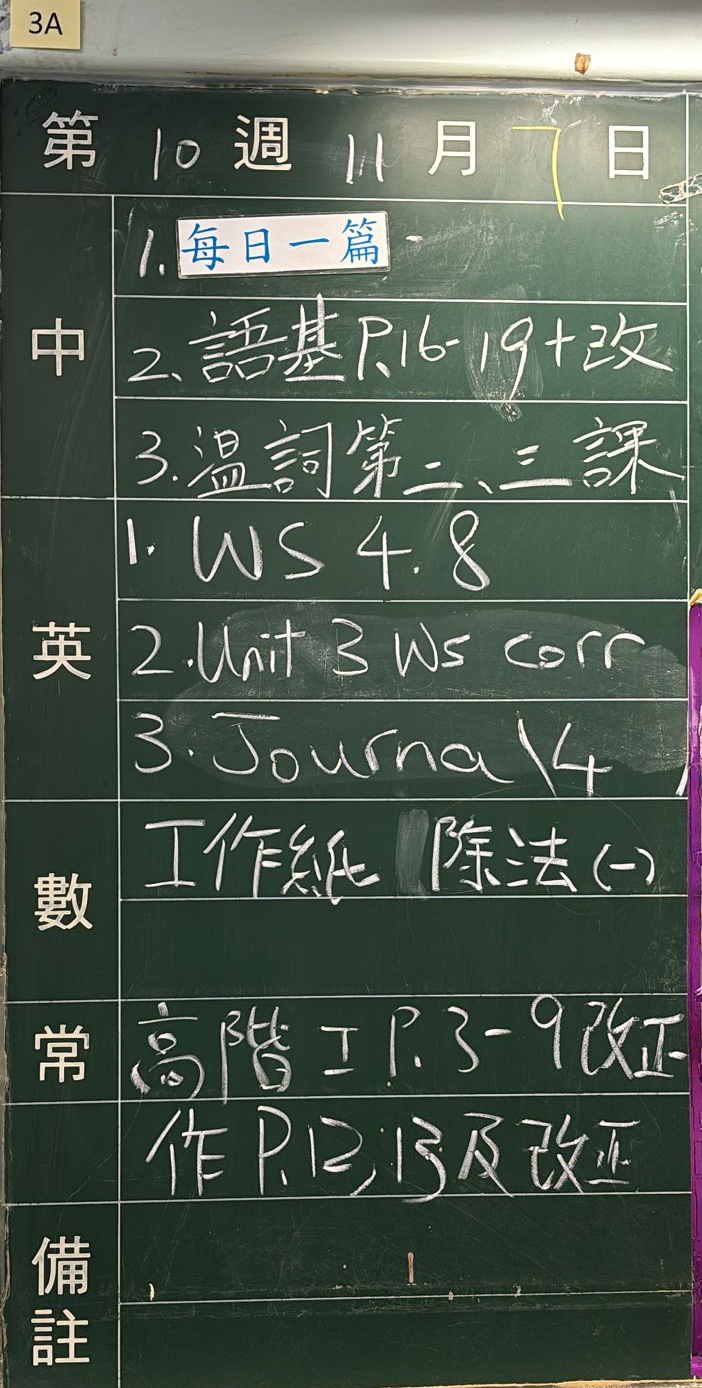 3A
第 10 週 11 月 7 日
中
1. 每日一篇
2. 語基 P.16-19+改
3. 温詞第二、三課
英
1. WS 4.8
2. Unit 3 WS corr
3. Journal 4
數
工作紙 除法(一)
常
高階工 P.3-9 改正
作 P.12, 13 及 改正
備註